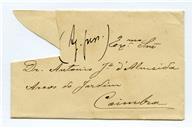 Exmo Snr
Dr. Antonio Jé d'Almeida
Arcos do Jardim
Coimbra